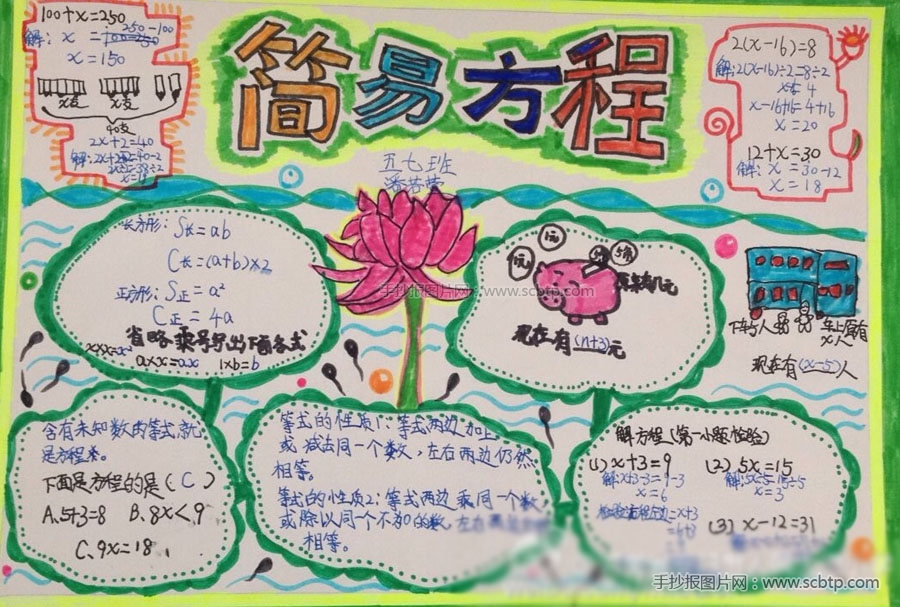 简易方程
五七班
100+x=250
解: x = 250-100
x=150
x支 x支
40支
2x+2=40
解: 2x+2-2=40-2
x=19
2(x-16)=8
解: 2(x-16)÷2=8÷2
x-16=4
x-16+16=4+16
x=20
12+x=30
解: x=30-12
x=18
长方形: S长=ab
C长=(a+b)×2
正方形: S正=a²
C正=4a
省略乘号写出下面各式
x×x=x² a×x=ax 1×b=b
1元 1元 5角 5角
原来有几元
现在有(n+3)元
下车5人 车上原有x人
现在有(x-5)人
含有未知数的等式,就
是方程
下面是方程的是(C)
A、5+3=8 B、8x<9
C、9x=18
等式的性质1:等式两边加上
或减法同一个数,左右两边仍然
相等。
等式的性质2:等式两边乘同一个数,
或除以同一个不为0的数,左右两边
相等。
解方程(第一小题检验)
(1) x+3=9 (2) 5x=15
解: x+3-3=9-3 解: 5x÷5=15÷5
x=6 x=3
检验:方程左边=x+3
=6+3
(3) x-12=31
手抄报图片网:www.scbtp.com
手抄报图片网:www.scbtp.com